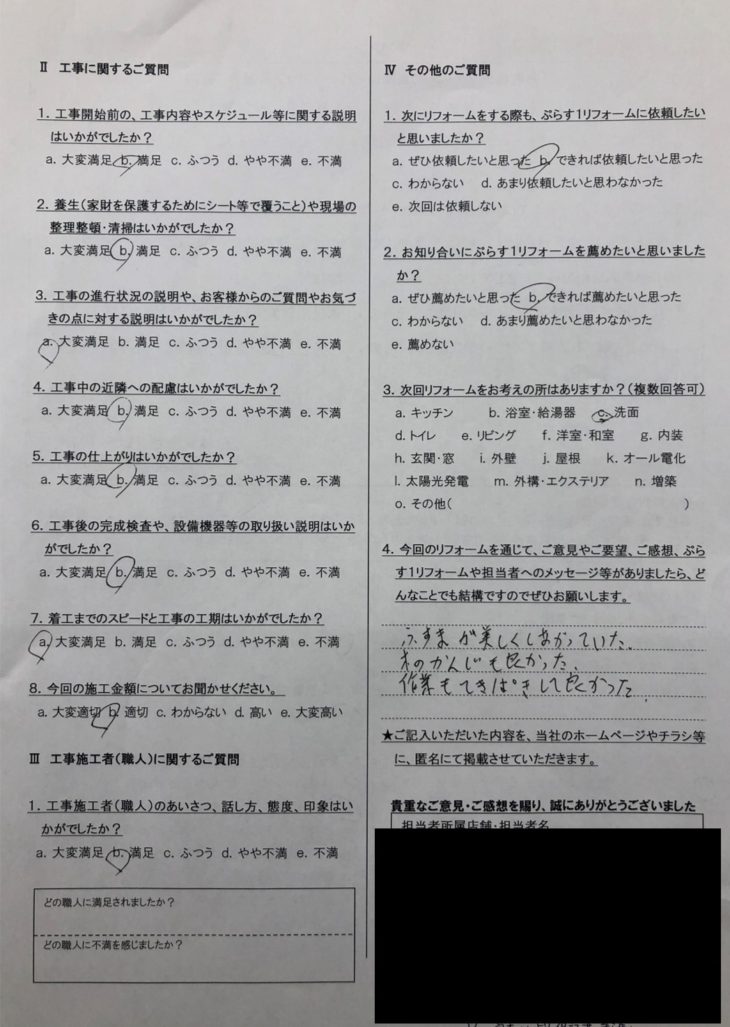 Ⅱ 工事に関するご質問
1. 工事開始前の、工事内容やスケジュール等に関する説明
はいかがでしたか？
a. 大変満足 b. 満足 c. ふつう d. やや不満 e. 不満
2. 養生(家財を保護するためにシート等で覆うこと)や現場の
整理整頓・清掃はいかがでしたか？
a. 大変満足 b. 満足 c. ふつう d. やや不満 e. 不満
3. 工事の進行状況の説明や、お客様からのご質問やお気づ
きの点に対する説明はいかがでしたか？
a. 大変満足 b. 満足 c. ふつう d. やや不満 e. 不満
4. 工事中の近隣への配慮はいかがでしたか？
a. 大変満足 b. 満足 c. ふつう d. やや不満 e. 不満
5. 工事の仕上がりはいかがでしたか？
a. 大変満足 b. 満足 c. ふつう d. やや不満 e. 不満
6. 工事後の完成検査や、設備機器等の取り扱い説明はいか
がでしたか？
a. 大変満足 b. 満足 c. ふつう d. やや不満 e. 不満
7. 着工までのスピードと工事の工期はいかがでしたか？
a. 大変満足 b. 満足 c. ふつう d. やや不満 e. 不満
8. 今回の施工金額についてお聞かせください。
a. 大変適切 b. 適切 c. わからない d. 高い e. 大変高い
Ⅲ 工事施工者(職人)に関するご質問
1. 工事施工者(職人)のあいさつ、話し方、態度、印象はい
かがでしたか？
a. 大変満足 b. 満足 c. ふつう d. やや不満 e. 不満
どの職人に満足されましたか？
どの職人に不満を感じましたか？
Ⅳ その他のご質問
1. 次にリフォームをする際も、ぷらす1リフォームに依頼したい
と思いましたか？
a. ぜひ依頼したいと思った b. できれば依頼したいと思った
c. わからない d. あまり依頼したいと思わなかった
e. 次回は依頼しない
2. お知り合いにぷらす1リフォームを薦めたいと思いました
か？
a. ぜひ薦めたいと思った b. できれば薦めたいと思った
c. わからない d. あまり薦めたいと思わなかった
e. 薦めない
3. 次回リフォームをお考えの所はありますか？(複数回答可)
a. キッチン b. 浴室・給湯器 c. 洗面
d. トイレ e. リビング f. 洋室・和室 g. 内装
h. 玄関・窓 i. 外壁 j. 屋根 k. オール電化
l. 太陽光発電 m. 外構・エクステリア n. 増築
o. その他( )
4. 今回のリフォームを通じて、ご意見やご要望、ご感想、ぷら
す1リフォームや担当者へのメッセージ等がありましたら、ど
んなことでも結構ですのでぜひお願いします。
ふすまが美しくしあがっていた。
木のかんじも良かった、
作業もてきぱきして良かった
★ご記入いただいた内容を、当社のホームページやチラシ等
に、匿名にて掲載させていただきます。
貴重なご意見・ご感想を賜り、誠にありがとうございました
担当者所属店舗・担当者名